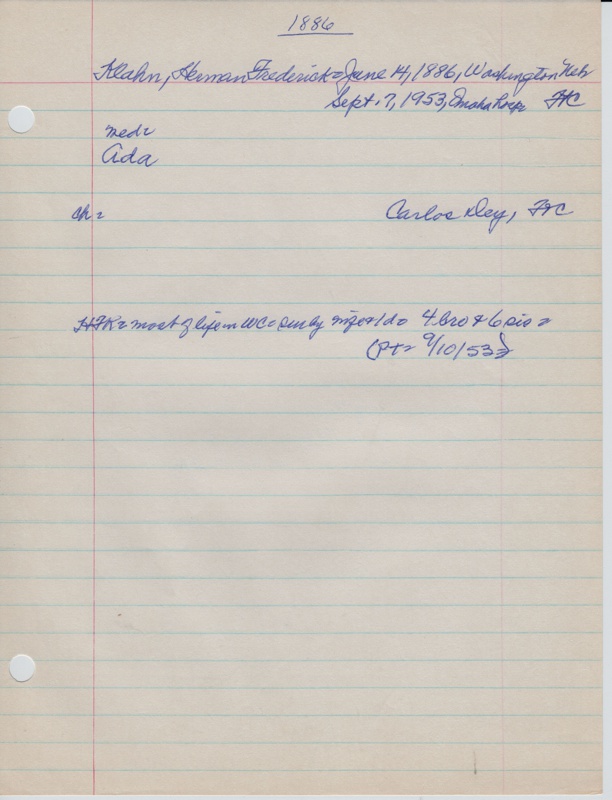 1886
Klahn, Herman Frederick = June 14, 1886, Washington Neb
Sept. 7, 1953, Omaha Hosp FC
med=
Ada
ch = Carlos Dey, FC
HFK = most of life in WCo sur by wife & 1 da 4 bro & 6 sis =
(PT= 9/10/53)